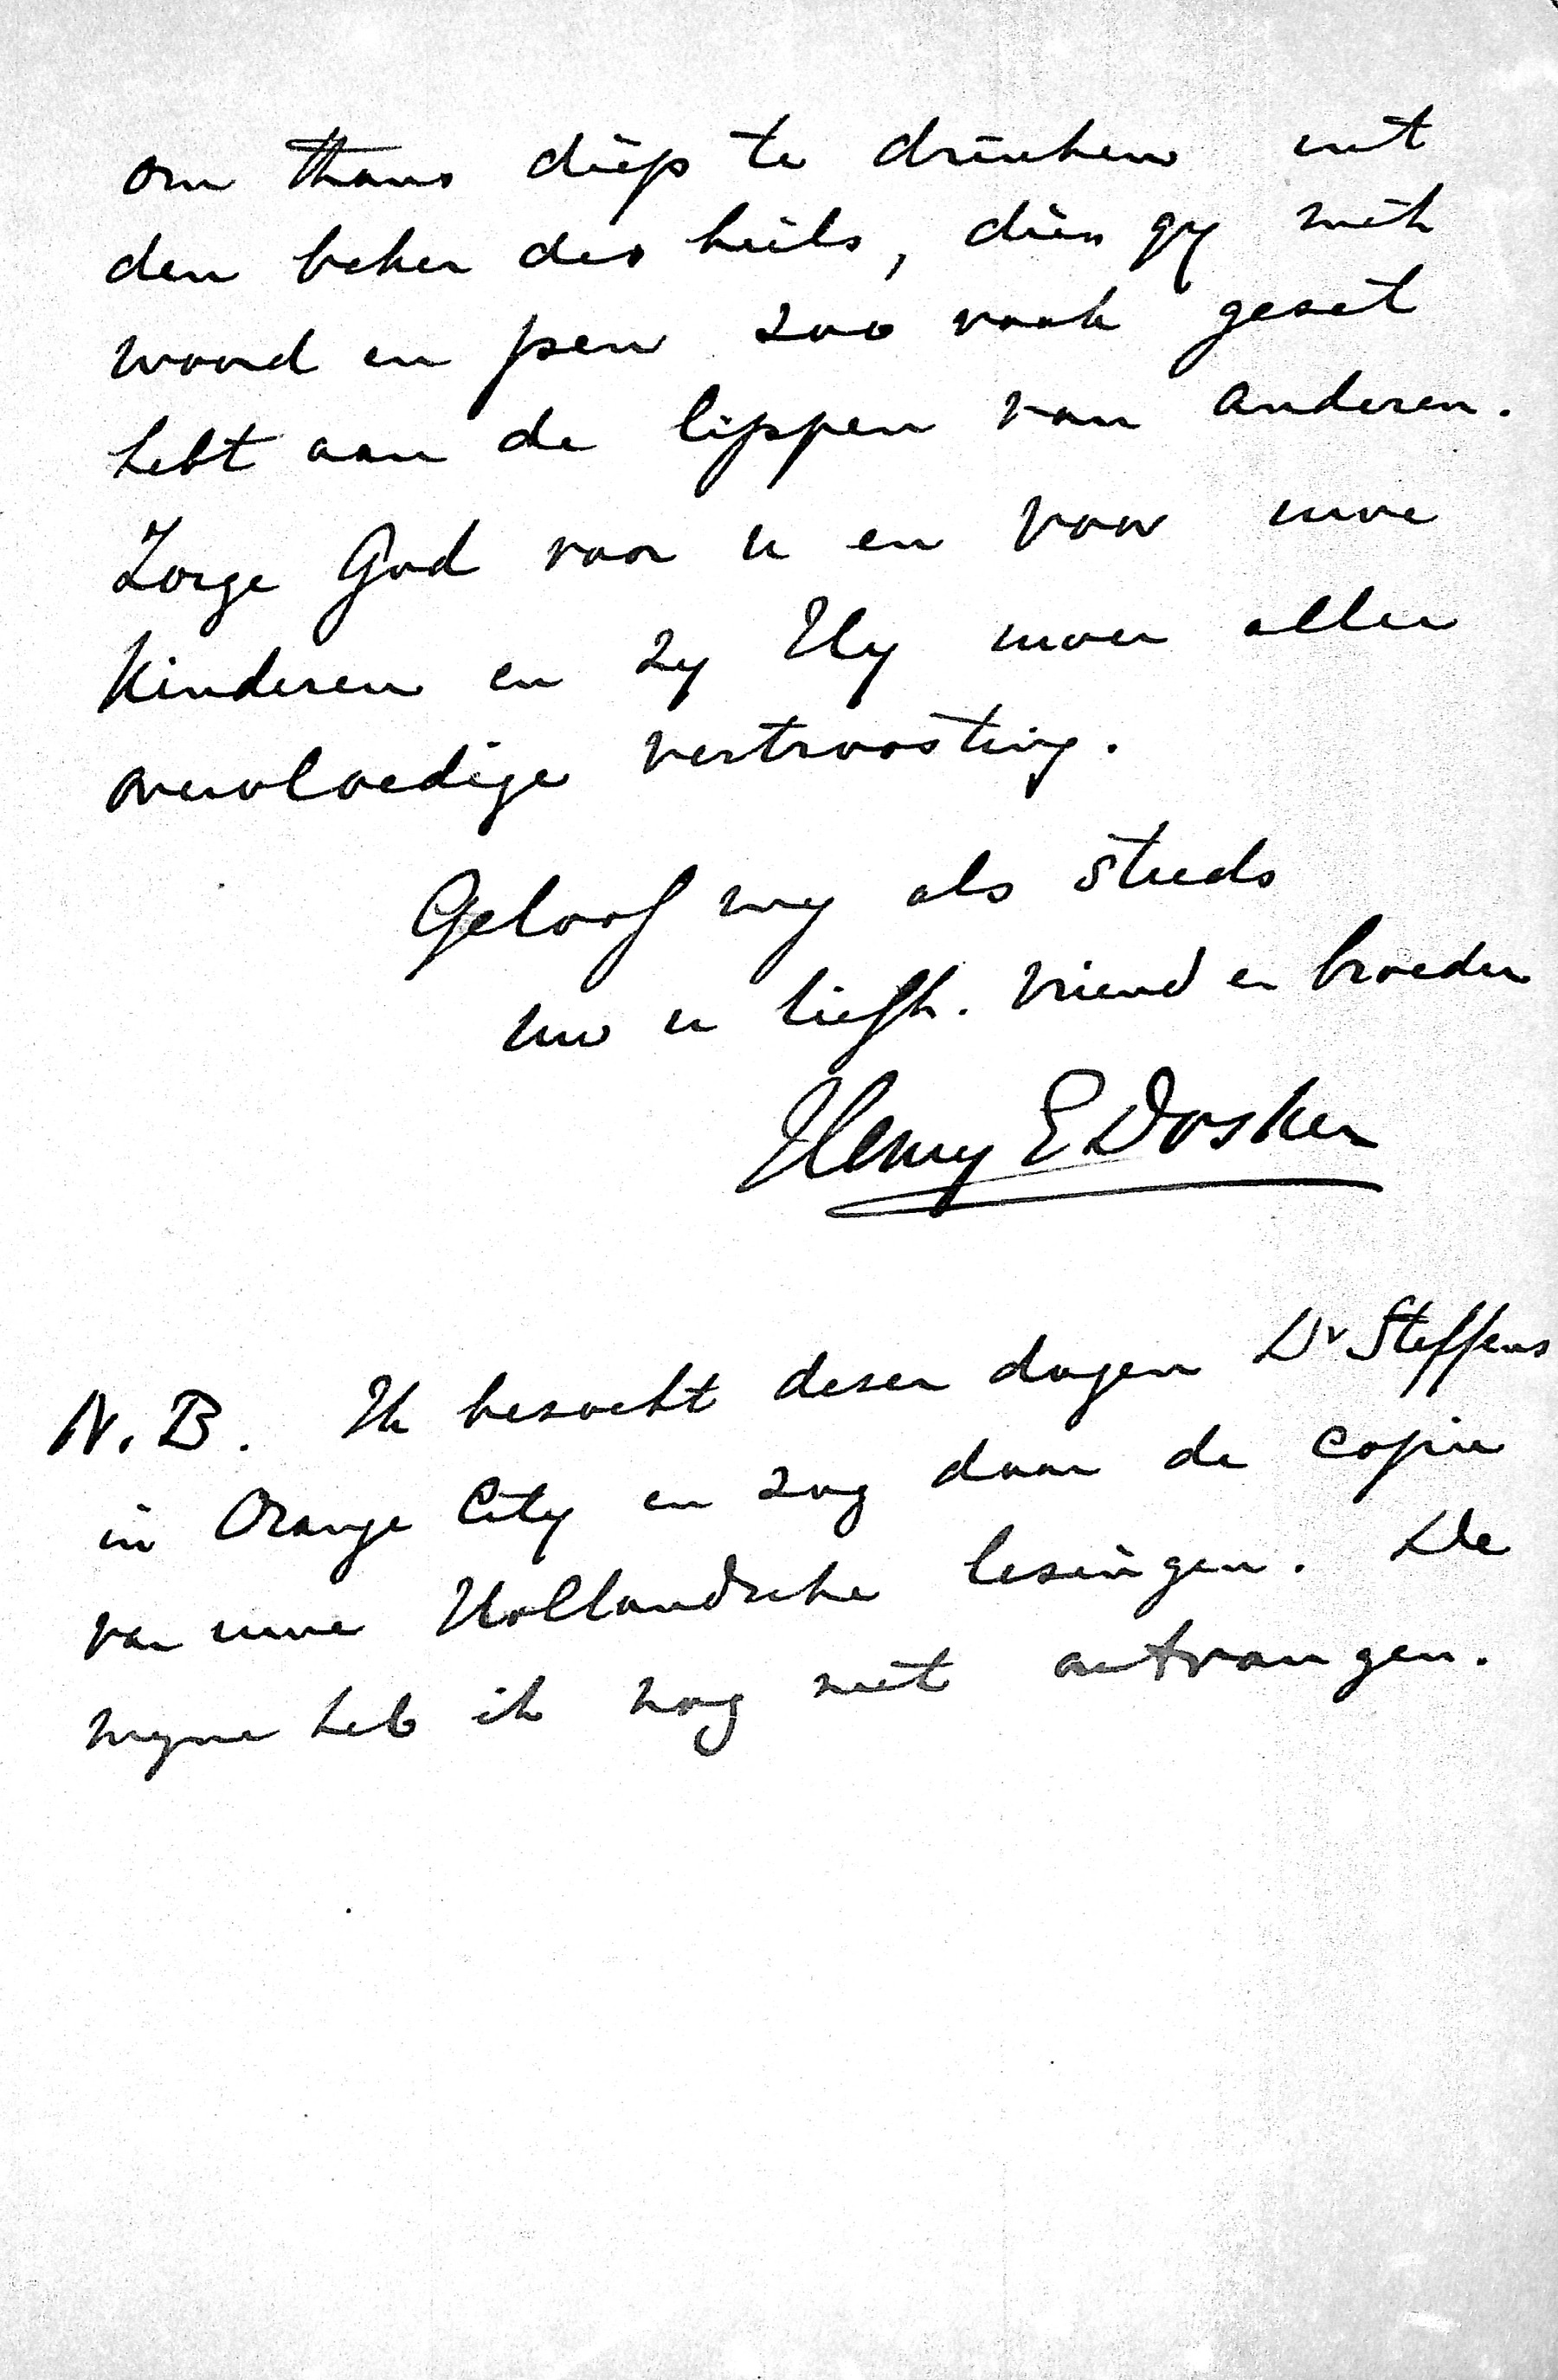 om thans diep te drinken uit
den beker des heils, dien gy met
woord en pen zoo vaak gezet
hebt aan de lippen van anderen.
Zorge God voor u en voor uwe
kinderen en zy Hy uwer aller
overvloedige vertroosting.
Geloof my als steeds
uw u liefh. vriend en broeder
Henry E Dosker
N.B. Ik bezocht dezer dagen Dr Steffens
in Orange City en zag daar de copie
van uwe Hollandsche lezingen. De
myne heb ik nog niet ontvangen.